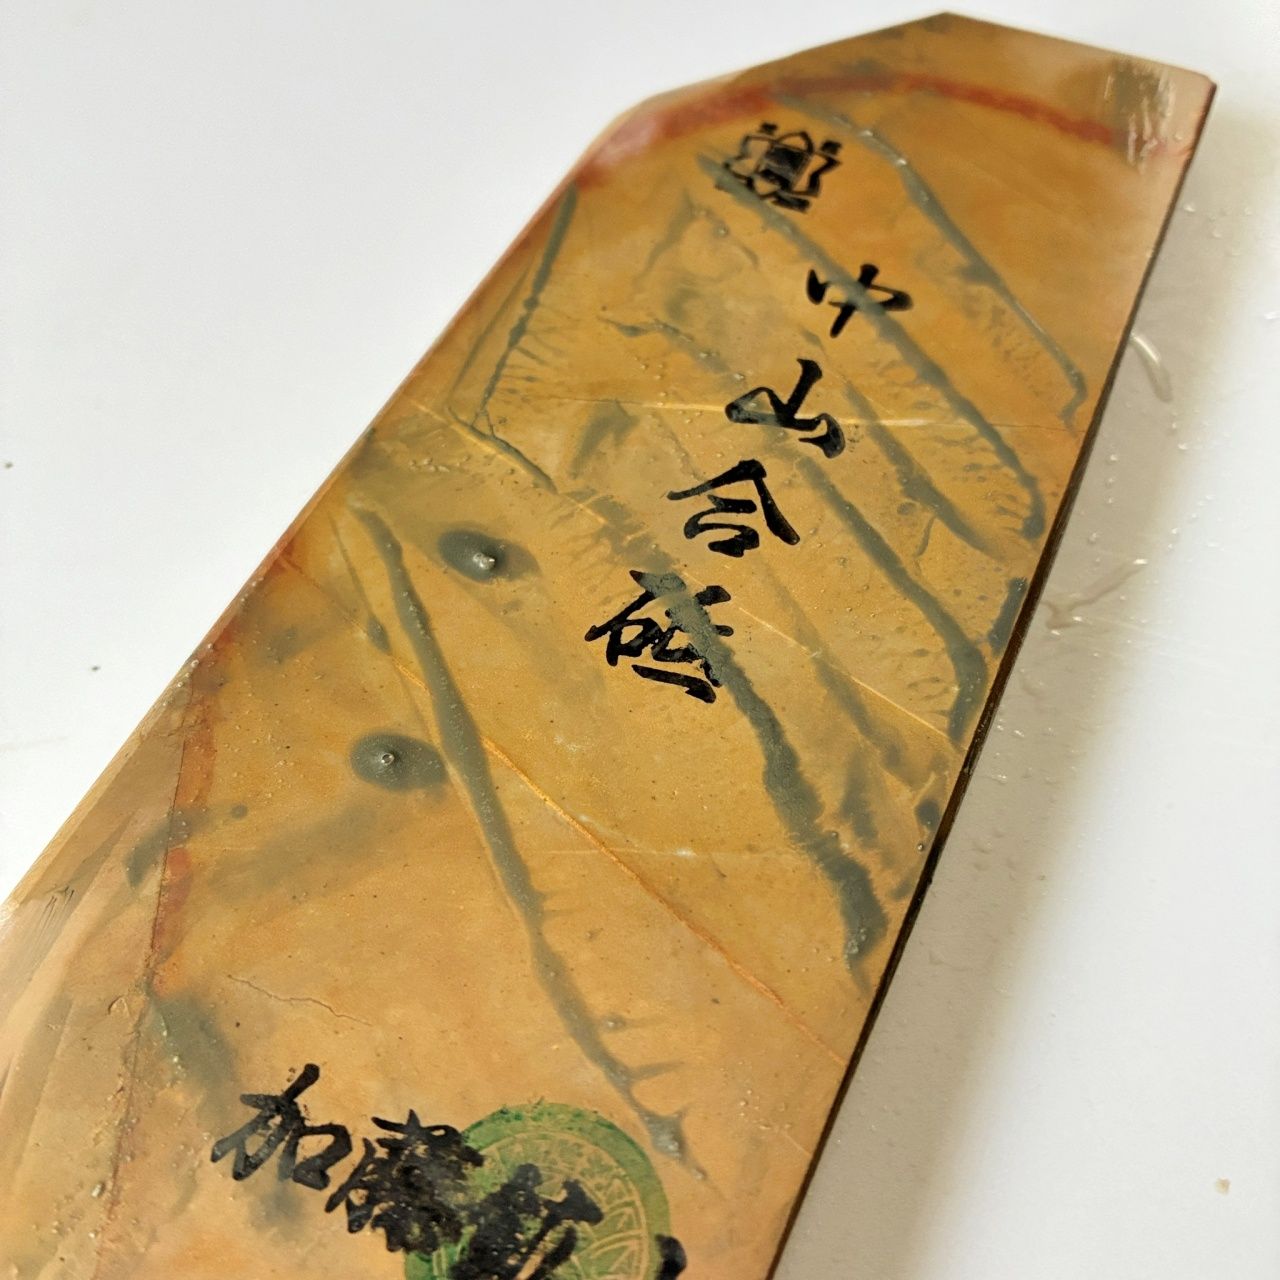 中山合砥
加藤